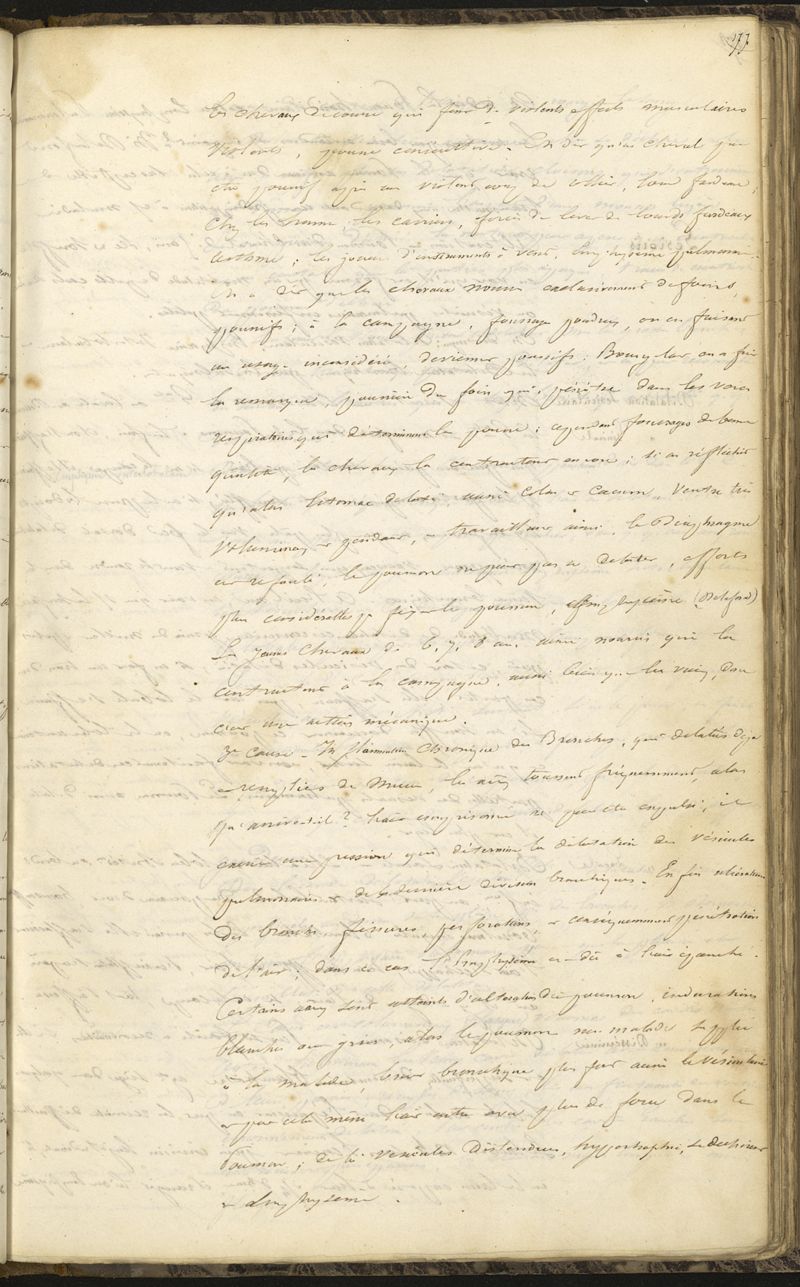 77
Les chevaux de course qui font de violents efforts musculaires
violents, pousse consécutive. On dit qu'un cheval peut
être poussif après un violent coup de collier, lourd fardeau;
chez les hommes, les carriers, forcés de lever de lourds fardeaux
asthme; les joueurs d'instruments à vent, Emphysème pulmonaire.
On a dit que les chevaux nourris exclusivement de foins,
poussifs; à la campagne, fourrage poudreux, on en faisant
un usage inconsidéré, deviennent poussifs: Bourgelat on a fait
la remarque, poussière du foin qui pénètre dans les voies
respiratoires qui déterminent la pousse; cependant fourrages de bonne
qualité, les chevaux la contractent encore; si on réfléchit
qu'alors l'estomac dilaté, aussi colon et caecum, ventre très
volumineux et pendant, et travaillant ainsi, le diaphragme
est refoulé, le poumon ne peut pas se dilater, efforts
plus considérables que fait le poumon, Emphysème (Delafond)
Les jeunes chevaux de 6, 7, 8 ans, ainsi nourris qui la
contractent à la campagne, aussi bien que les vieux, donc
c'est une action mécanique.
3e cause - Inflammation chronique des Bronches, qui dilatées déjà
et remplies de mucus, les anx toussent fréquemment, alors
qu'arrive-t-il? l'air emprisonné ne peut être expulsé, il
exerce une pression qui détermine la dilatation des vésicules
pulmonaires et de la dernière division bronchiques. Enfin ulcération
des bronches, fissures, perforations, et conséquemment pénétration
de l'air; dans ce cas l'Emphysème est dû à l'air épanché.
Certains anx sont atteints d'altération du poumon, indurations
blanches ou grises, alors le poumon non malade supplée
à la malade, bruit bronchique plus fort aussi le vésiculaire
et par cela même l'air entre avec plus de force dans le
Poumon; de là vésicules distendues, hypertrophie, se déchirent
et Emphysème.